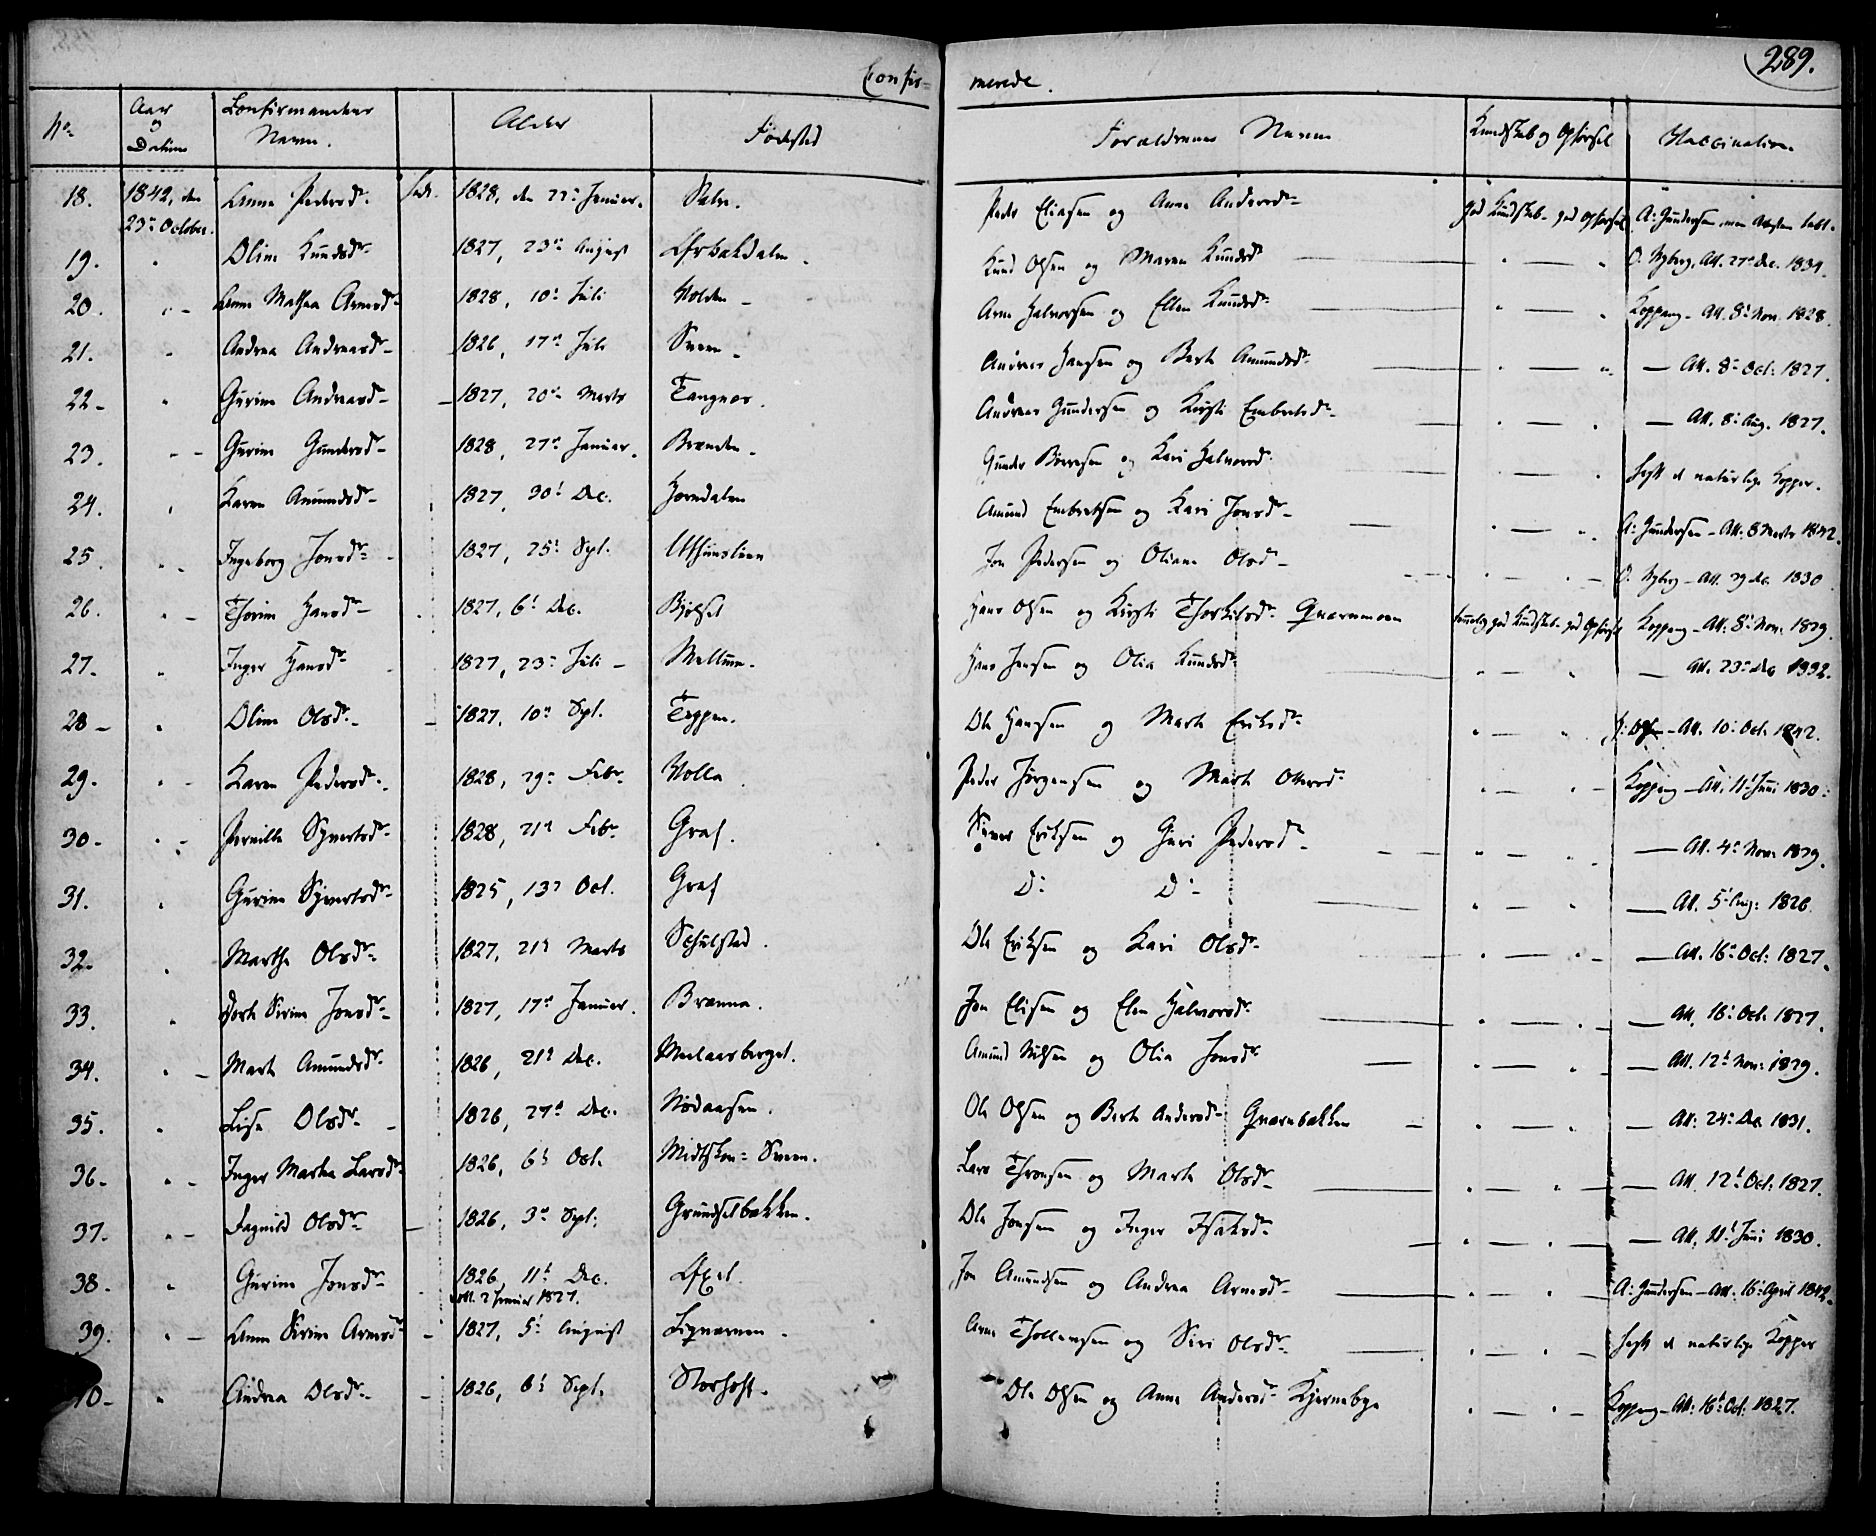 289.
Confir=
merede.
No
Aar og Datum
Confirmandens Navne.
Alder
Fødested
Forældrenes Navne
Kundskab og Opførsel
Vaccination
18. 1842, den 23de October. Anna Pedersdr. 1828, den 22de Januar. Peder Eliasen og Anne Andersdr. god Kundskab - god Opførsel A: Gundersen
19. " Oline Knudsdr. 1827, 23de August Ørbækdalen. Knud Olsen og Maren Knudsdr. " — " O. Nyberg, Att. 27de Dec. 1834.
20. " Anne Mathea Arnesdr. 1828, 10de Juli Volden Arne Halvorsen og Ellen Knudsdr. " — " Koppang - Att. 8de Nov. 1828.
21. " Andrea Andreasdr. 1826, 17de Juli Sveen Andreas Hansen og Berte Amundsdr. " — " — Att. 8de Oct. 1827.
22 " Gurine Andreasd. 1827, 20de Marts Tangnæs. Andreas Gundersen og Kirsti Embretsdr. " — " — Att. 8de Aug. 1827.
23. " Gurine Gundersdr. 1828, 27de Januar. Brænden. Gunder Børresen og Kari Halvorsd. " — " Havt de naturlige Kopper.
24. " Karen Amundsdr. 1827, 30te Dec. Horndalen Amund Embretsen og Kari Jonsdr. " — " A: Gundersen - Att. 8 Marts 1842.
25. " Ingeborg Jonsdr. 1827, 25de Spt. Jon Pedersen og Oliane Olsd. " — " O. Nyberg - Att. 29 Dec. 1830
26. " Thorine Hansdr. 1827, 6te Dec. Bjølset Hans Olsen og Kirsti Thorkilsdr. Quærnmoen temmelig god Kundskab - god Opførsel Koppang - Att. 8de Nov. 1829.
27. " Inger Hansdr. 1827, 23de Juli Mellum. Hans Jensen og Olia Knudsdr. " — " — Att. 23de Dec. 1832.
28 " Oline Olsdr. 1827, 10de Spt. Teppen. Ole Hansen og Marte Eriksdr. " — " Att. 10de Oct. 1842.
29. " Karen Pedersdr. 1828, 29de Febr. Volla Peder Jørgensen og Marte Olsdr. " — " Koppang - Att. 11te Juni 1830.
30. " Pernille Syversdr. 1828, 21de Febr. Graf. Syver Eriksen og Guri Pedersd. " — " — Att. 4de Nov. 1829.
31. " Gurine Syversdr. 1825, 13de Oct. Graf Do Do " — " — Att. 5te Aug: 1826.
32. " Marthe Olsdr. 1827, 21de Marts Schulstad. Ole Eriksen og Kari Olsdr. " — " — Att. 16de Oct: 1827.
33. " Dorte Sirine Jonsdr. 1827, 17de Januar. Brænna. Jon Elisen og Elen Halvorsdr. " — " — Att. 16de Oct. 1827.
34. " Marte Amundsdr. 1826, 21de Dec. Melaasberget. Amund Nilsen og Olia Jonsdr. " — " — Att. 12te Nov: 1829.
35. " Lise Olsdr. 1826, 27de Dec. Nødaasen. Ole Olsen og Berte Andersd. Quærnbakken " — " — Att. 24de Dec. 1831.
36. " Inger Marthea Larsdr. 1826, 6te Oct. Midtskov-Sveen. Lars Thronsen og Marte Olsdr. " — " — Att. 12te Oct. 1827.
37. " Ragnild Olsdr. 1826, 3de Spt. Grundsetbakken. Ole Jonsen og Inger Isaksdr. " — " — Att. 11te Juni 1830.
38. " Gurine Jonsdr. 1826, 11te Dec. 2 Januar 1827. Øxet. Jon Amundsen og Andrea Arnesdr. " — " A: Gundersen - Att. 16de April 1842.
39. " Anne Sirine Arnesdr. 1827, 5te August Arne Thollevsen og Siri Olsdr. " — " Havt de naturlige Kopper
40 " Andrea Olsdr. 1826, 6te Sept. Storhoft. Ole Olsen og Anne Andersd. Kjernebye " — " Koppang - Att. 16de Oct: 1827.